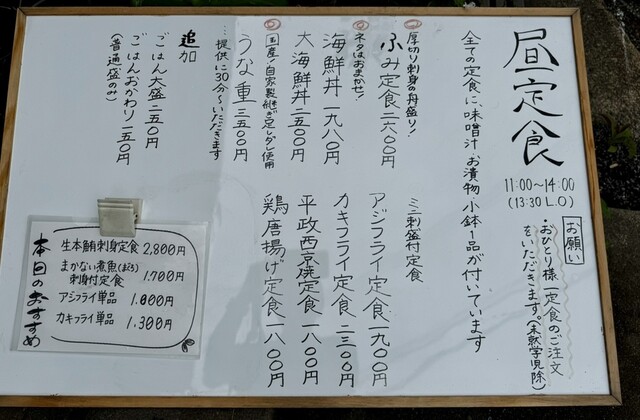 昼定食
11:00～14:00
(13:30 L.O)
お願い
・おひとり様一定食のご注文
をいただきます。(未就学児除)
全ての定食に、味噌汁 お漬物 小鉢1品が付いています
厚切り刺身の舟盛り!
ふみ定食 二六〇〇円
ネタはおまかせ!
海鮮丼 一九八〇円
大海鮮丼 二五〇〇円
国産!自家製継ぎ足しダレ使用
うな重 三五〇〇円
…提供に30分～いただきます
追加
ごはん大盛 二五〇円
ごはんおかわり 一五〇円
(普通盛のみ)
ミニ刺盛付定食
アジフライ定食 一九〇〇円
カキフライ定食 二三〇〇円
平政西京焼定食 一八〇〇円
鶏唐揚げ定食 一八〇〇円
生本鮪刺身定食 2,800円
まかない煮魚(まぐろ)
刺身付定食 1.700円
アジフライ単品 1.000円
カキフライ単品 1.300円
本日のおすすめ